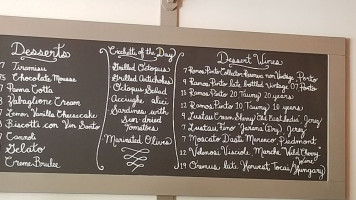 Desserts
7 Tiramisu
75 Chocolate Mousse
7 Panna Cotta
8 Zabaglione Cream
7 Lemon Vanilla Cheesecake
8 Biscotti con Vin Santo
7 Cannoli
Gelato
Creme Brulee
of the Day
Grilled Octopus
Grilled Artichokes
Octopus Salad
Acciughe alici
Sardines with
Sun-dried
Tomatoes
Marinated Olives
Dessert Wines
7 Ramos Pinto Collector Reserva non Vintage, Porto
9 Ramos Pinto late bottled Vintage 07 Porto
15 Ramos Pinto 20 Tawny 20 years
12 Ramos Pinto 10 Tawny 10 years
9 Lustau Cream Sherry "Old East India" Jerez
7 Lustau Fino "Jarana Dry" Jerez
7 Moscato Dasté Piedmont
12 Velenosi Visciole, Marche Wild Cherry
Wine
19 Oremus late Harvest Tocai/
Hungary